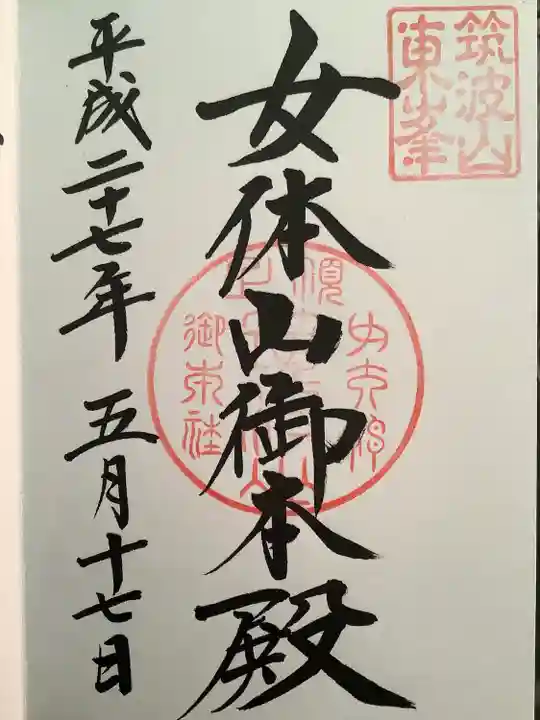 筑波山
東峯
女体山御本殿
御本社
平成二十七年 五月十七日